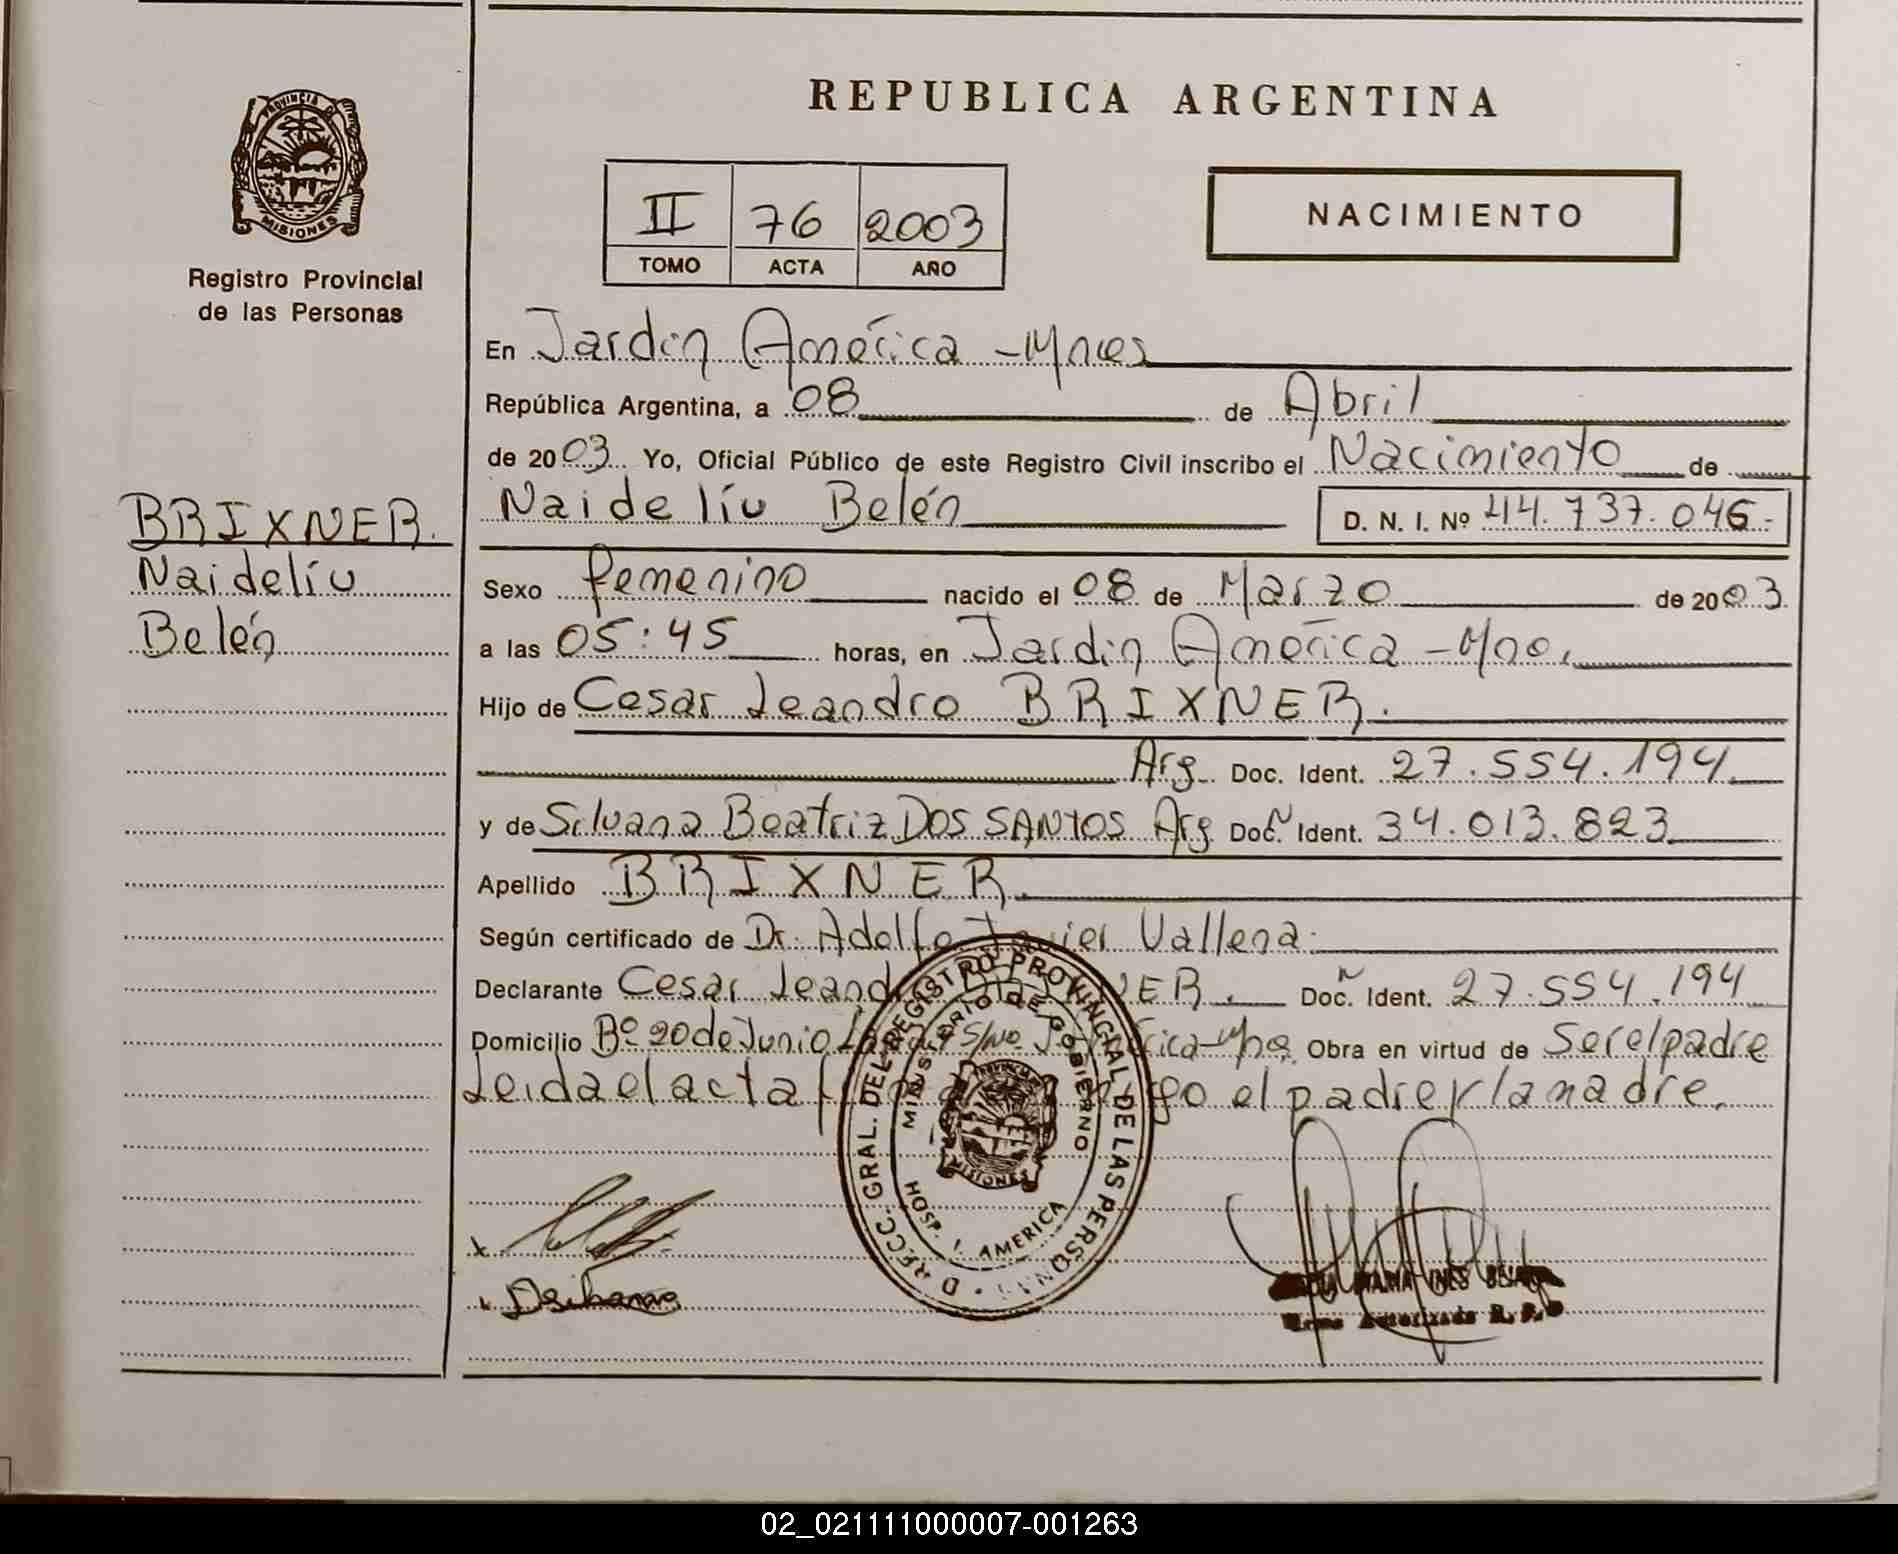 REPUBLICA ARGENTINA
PROVINCIA DE
MISIONES
Registro Provincial
de las Personas
II 76 2003
TOMO ACTA AÑO
NACIMIENTO
En Jardin América - Mnes
República Argentina, a 08 de Abril
de 2003. Yo, Oficial Público de este Registro Civil inscribo el Nacimiento de
Naidelíu Belén D. N. I. Nº 44.737.046.-
BRIXNER.
Naidelíu
Belén
Sexo femenino nacido el 08 de Marzo de 2003.
a las 05:45 horas, en Jardin América - Mne.
Hijo de Cesar Leandro BRIXNER.
Arg. Doc. Ident. 27.554.194
y de Silvana Beatriz DOS SANTOS Arg. Doc. Ident. 34.013.823
Apellido BRIXNER.
Según certificado de Dr. Adolfo Javier Vallena
Declarante Cesar Leandro BRIXNER. Doc. Ident. 27.554.194
Domicilio Bº 20 de Junio S/Nº Obra en virtud de Ser el padre
Leida el acta el padre y la madre.
DIRECC. GRAL. DEL REGISTRO PROVINCIAL DE LAS PERSONAS
MINISTERIO DE GOBIERNO
MISIONES
HOSP. J. AMERICA
MARIA INES
Firma Autorizada R. P.
02_021111000007-001263